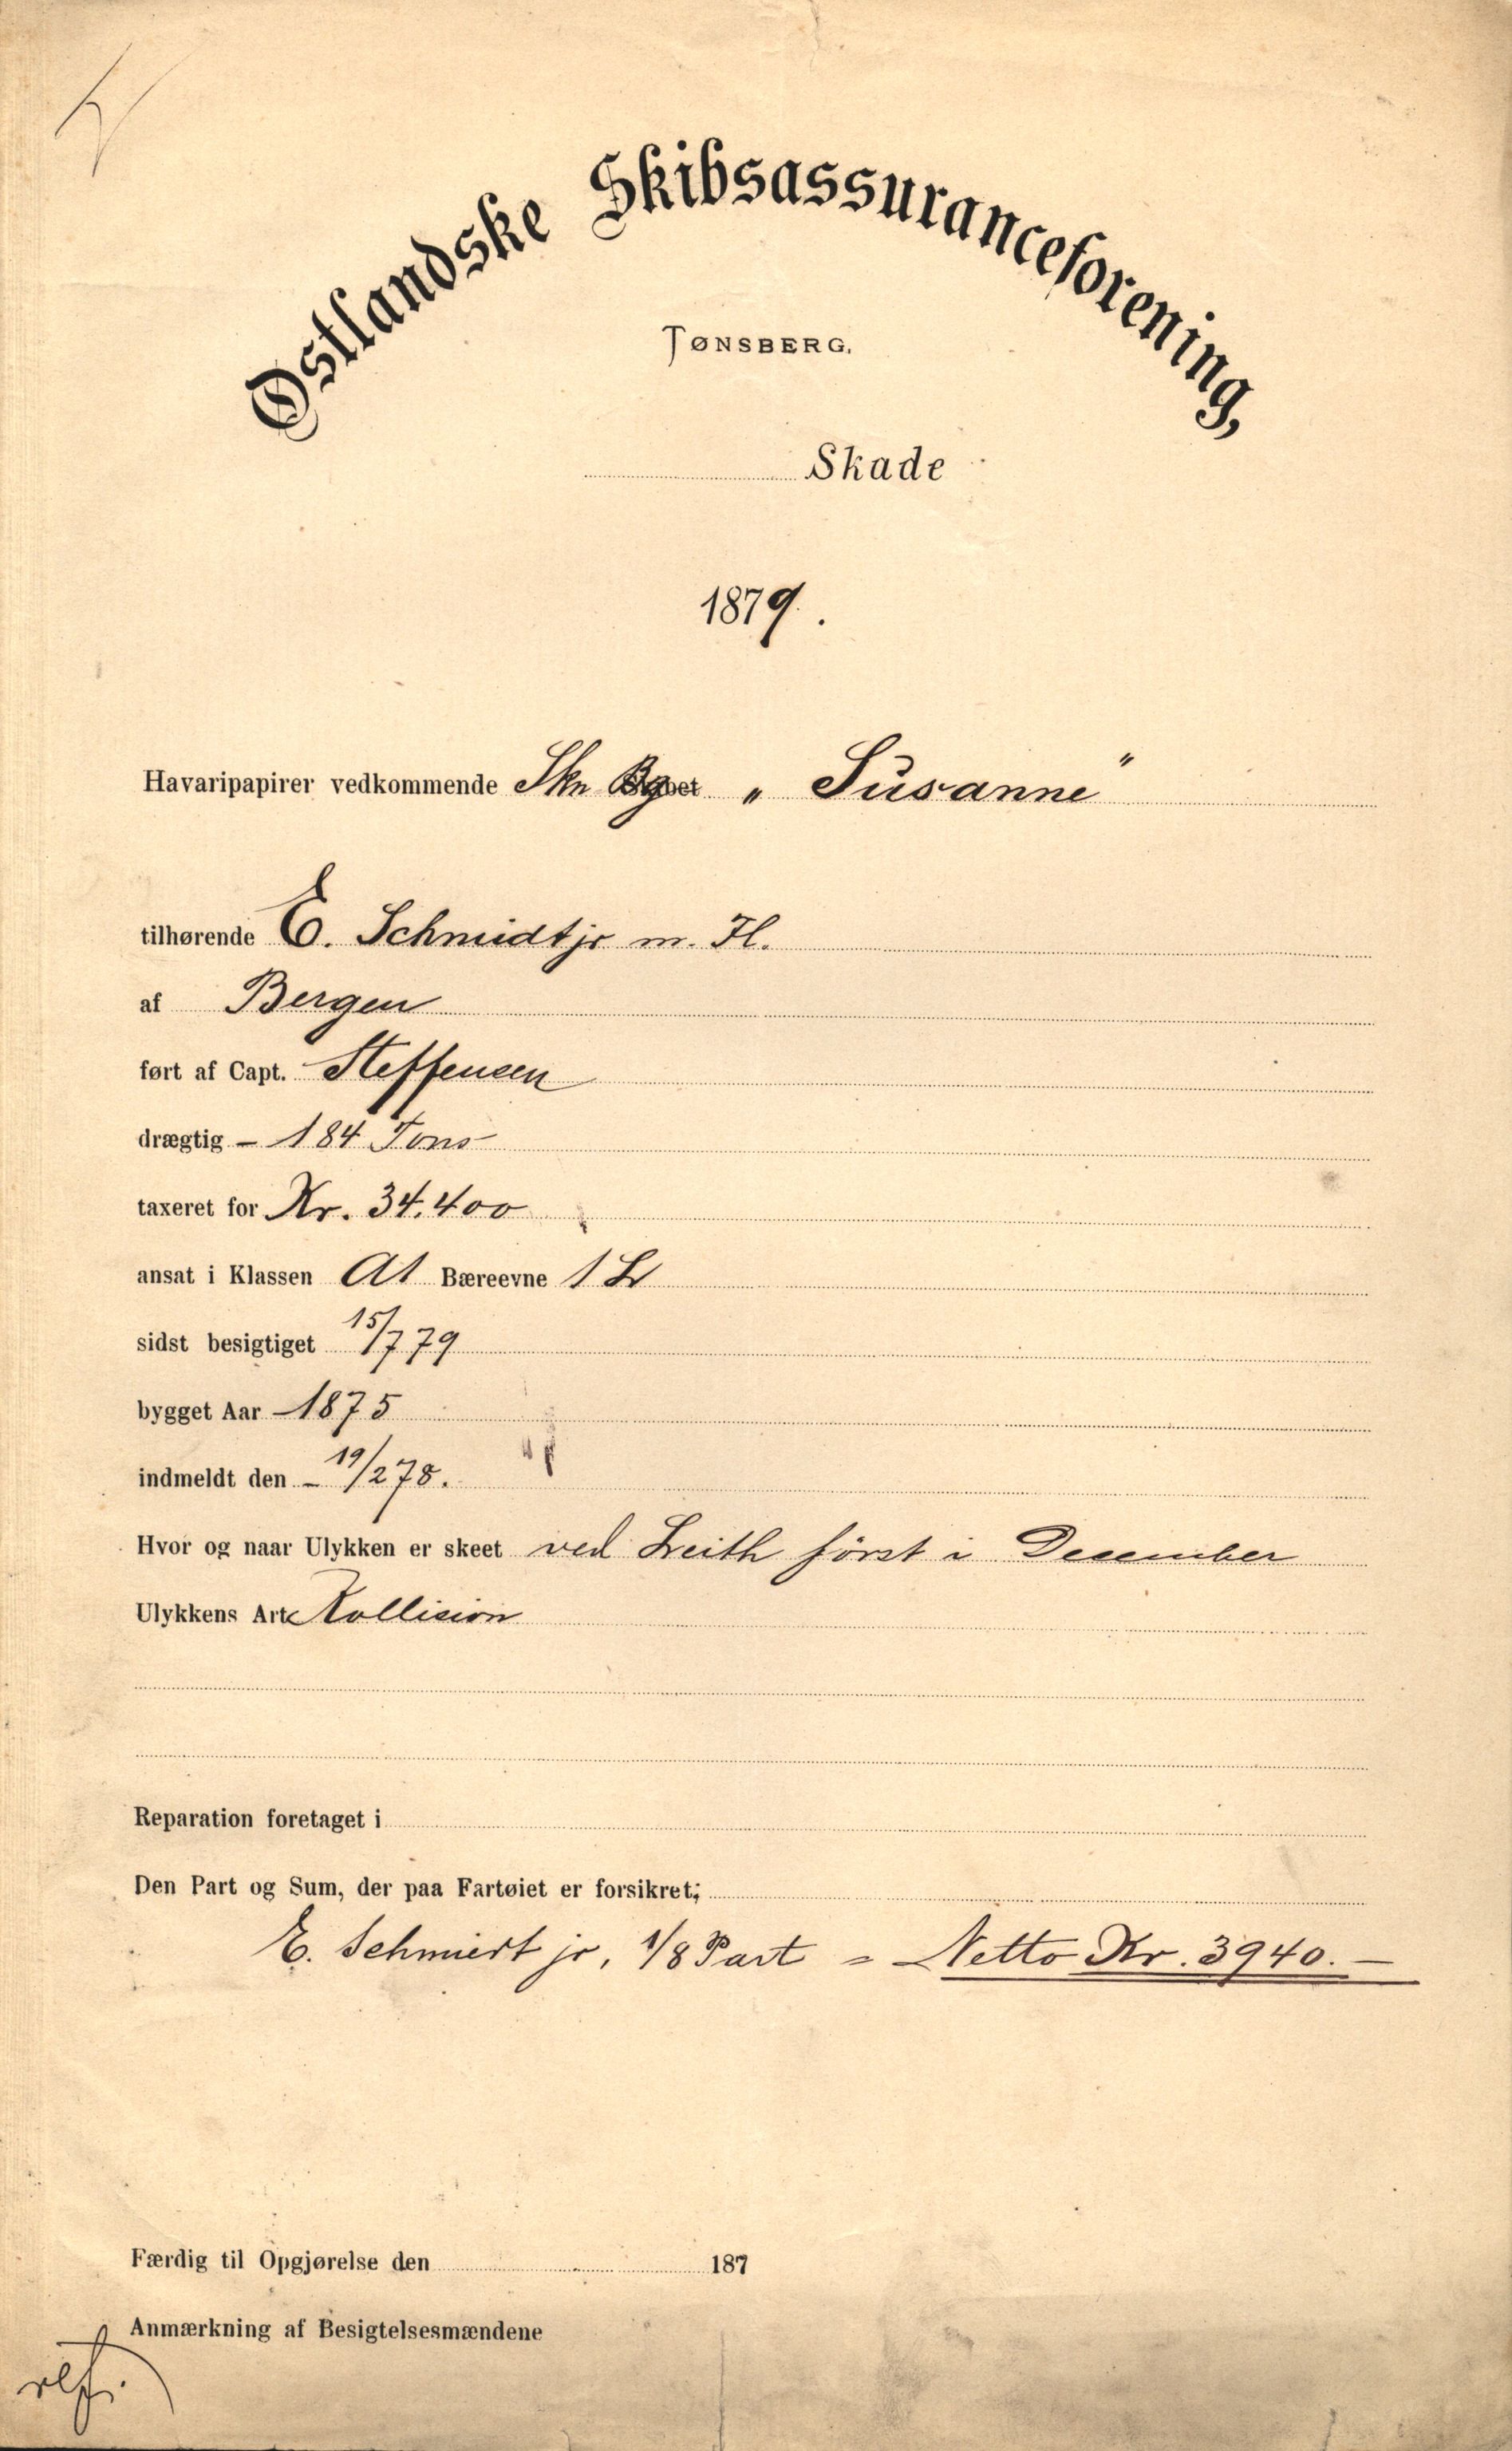 Østlandske Skibsassuranceforening,
TØNSBERG.
Skade
1879.
Havaripapirer vedkommende Skn Bg „ Susanne "
tilhørende E. Schmidt jr m. Fl.
af Bergen
ført af Capt. Steffensen
drægtig - 184 Tons
taxeret for Kr. 34.400
ansat i Klassen A1 Bæreevne 1 L
sidst besigtiget 15/7 79
bygget Aar 1875
indmeldt den - 19/2 78.
Hvor og naar Ulykken er skeet ved Leith først i December
Ulykkens Art Kollision
Reparation foretaget i
Den Part og Sum, der paa Fartøiet er forsikret;
E. Schmidt jr, 1/8 Part = Netto Kr. 3940. —
Færdig til Opgjørelse den 187
Anmærkning af Besigtelsesmændene